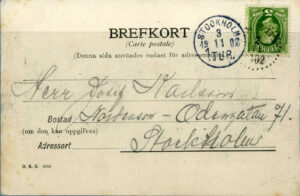 BREFKORT
(Carte postale)
(Denna sida användes endast för adressen
STOCKHOLM
3
19 11 02
1 TUR.
Herr Josef Karlsson
Bostad
Odengatan 71.
(om den kan uppgifvas)
Adressort Stockholm
02